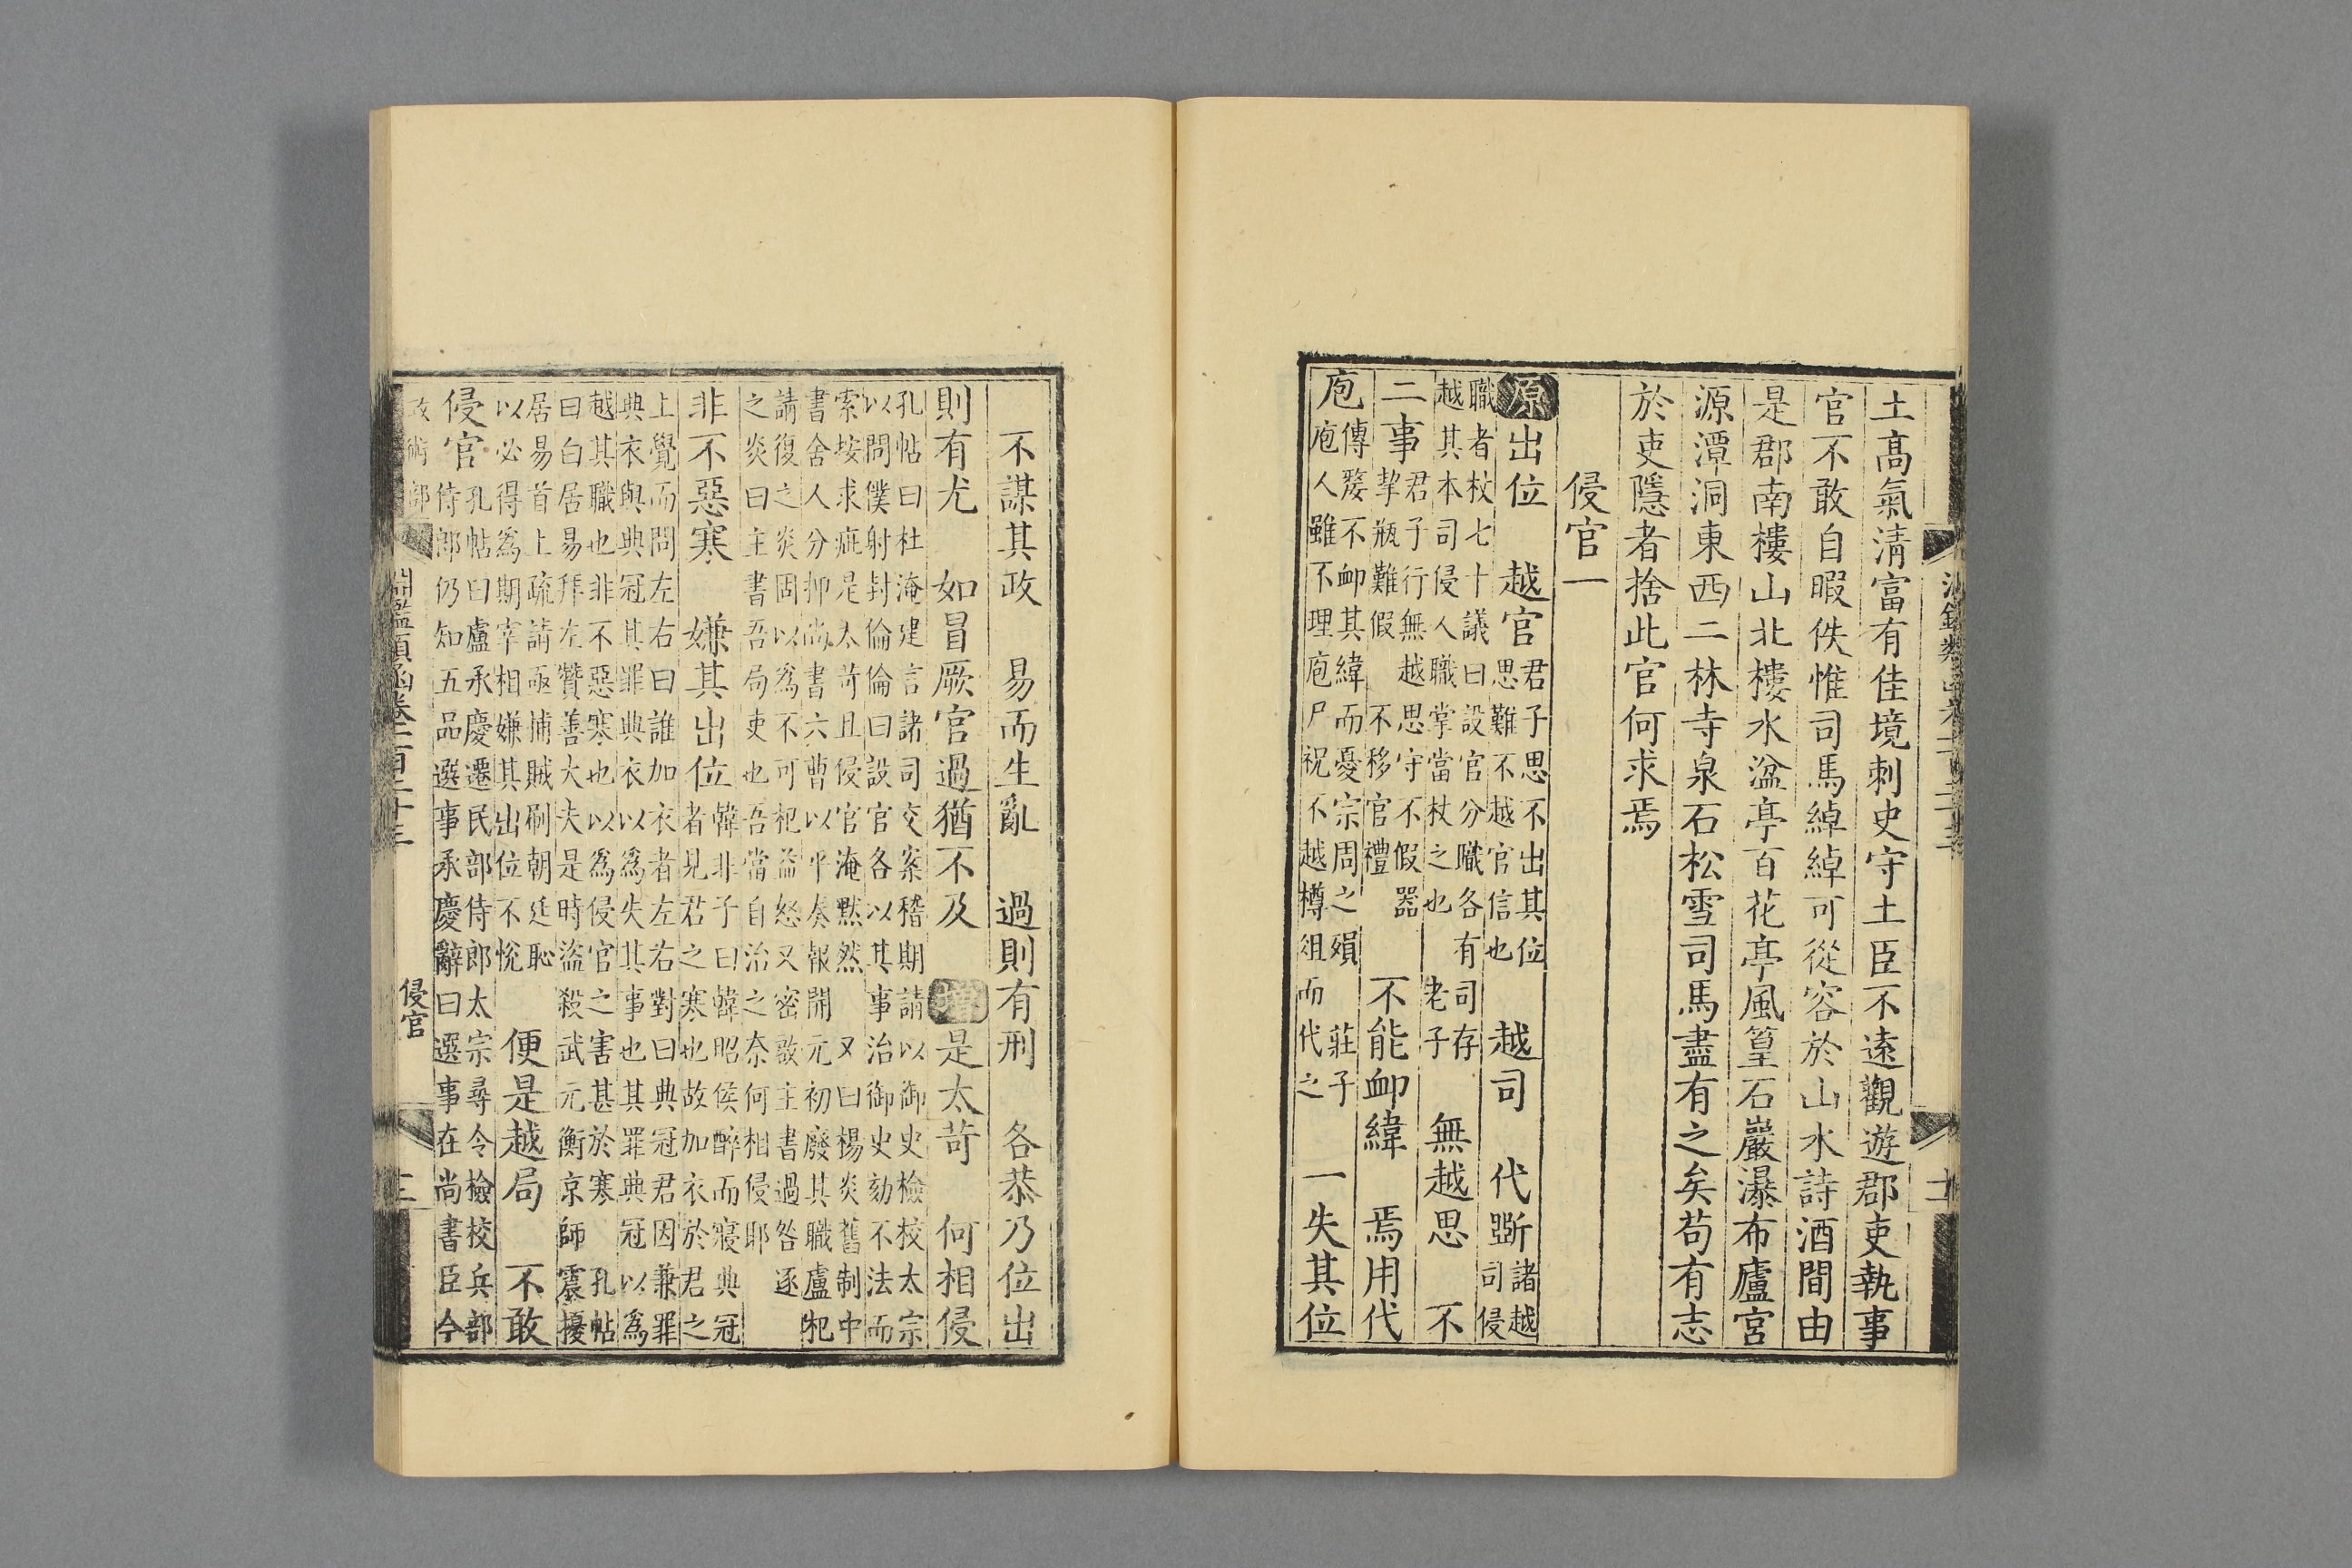 土高氣淸富有佳境刺史守土臣不遠觀遊郡吏執事
官不敢自暇佚惟司馬綽綽可從容於山水詩酒間由
是郡南樓山北樓水湓亭百花亭風篁石巖瀑布廬宮
源潭洞東西二林寺泉石松雪司馬盡有之矣苟有志
於吏隱者捨此官何求焉
侵官一
原出位 越官君子思不出其位思難不越官信也 越司 代斲諸越司侵
職者杖七十議曰設官分職各有司存越其本司侵人職掌當杖之也老子 無越思 不
二事君子行無越思守不假器挈瓶難假不移官禮 不能衈緯 焉用代
庖傳嫠不衈其緯而憂宗周之殞莊子庖人雖不理庖尸祝不越樽俎而代之 一失其位
不謀其政 易而生亂 過則有刑 各恭乃位出
則有尤 如冒厥官過猶不及 增是太苛 何相侵
孔帖曰杜淹建言諸司交案稽期請以御史檢校太宗以問僕射封倫倫曰設官各以其事治御史劾不法而
索按求疵是太苛且侵官淹黙然又曰楊炎舊制中書舍人分抑尚書六曹以平奏報開元初廢其職盧杞
請復之炎固以爲不可杞益怒又密啟主書過咎逐之炎曰主書吾局吏也吾當自治之奈何相侵耶
非不惡寒 嫌其出位韓非子曰韓昭侯醉而寢典冠者見君之寒也故加衣於君之
上覺而問左右曰誰加衣者左右對曰典冠君因兼罪典衣與典冠其罪典衣以爲失其事也其罪典冠以爲
越其職也非不惡寒也以爲侵官之害甚於寒孔帖曰白居易拜左贊善大夫是時盜殺武元衡京師震擾
居易首上疏請亟捕賊刷朝廷恥以必得爲期宰相嫌其出位不悅 便是越局 不敢
侵官孔帖曰盧承慶遷民部侍郎太宗尋令檢校兵部侍郎仍知五品選事承慶辭曰選事在尚書臣今
淵鑑類函卷一百二十三 侵官